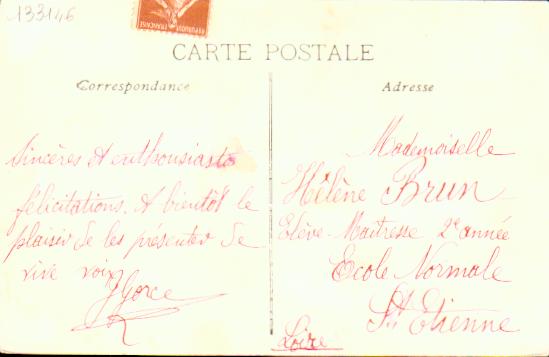 133146
REPUBLIQUE FRANCAISE
CARTE POSTALE
Correspondance
Sincères et enthousiastes
félicitations. A bientôt le
plaisir de les présenter de
vive voix
Adresse
Mademoiselle
Hélène Brun
Elève-Maitresse 2e année
Ecole Normale
St Etienne
Loire